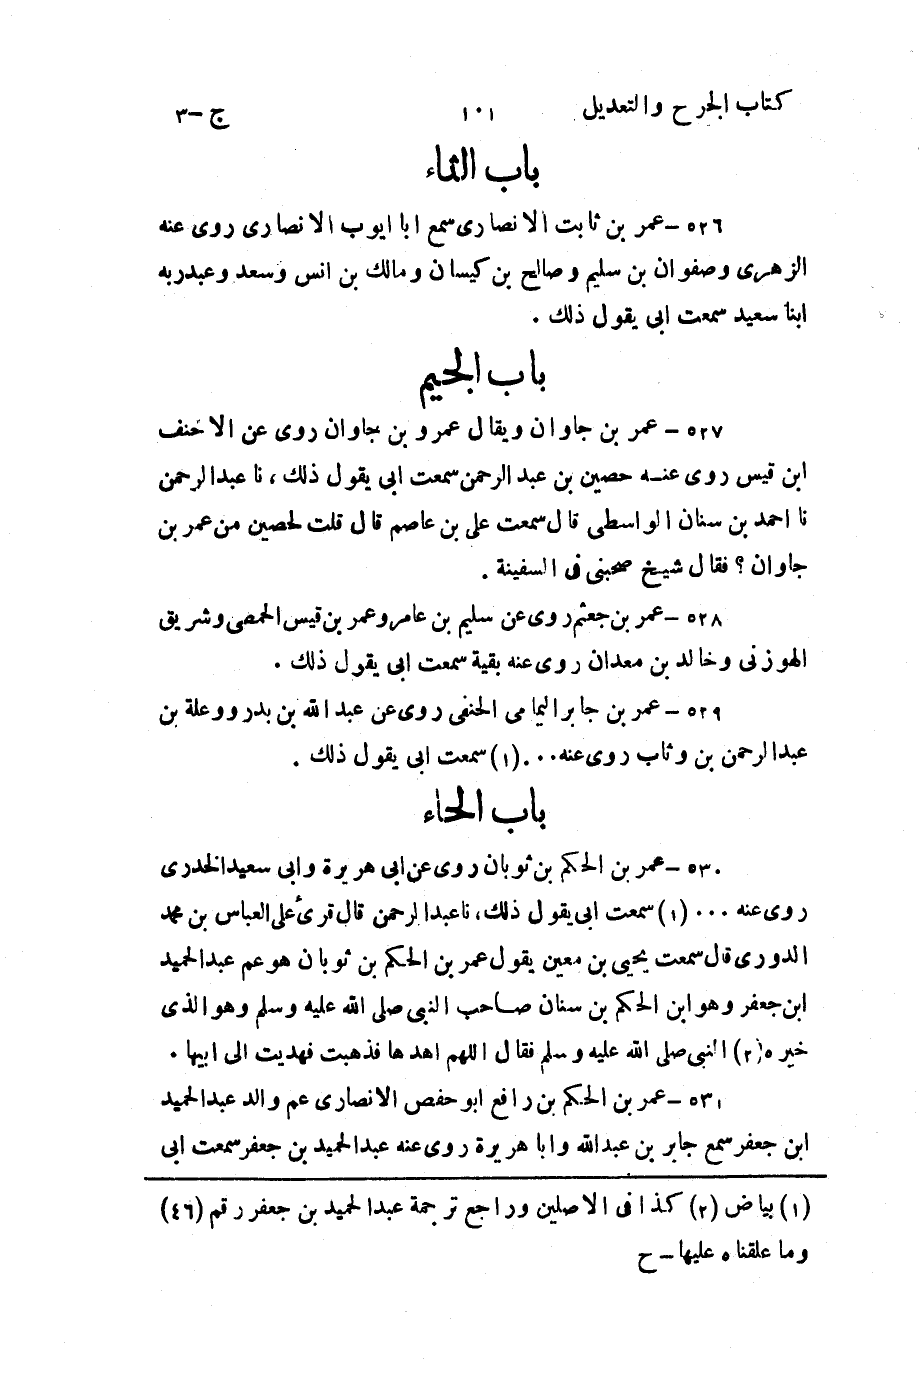 كتاب الجرح والتعديل ١٠١ ج-٣
باب الثاء
٥٢٦ - عمر بن ثابت الانصارى سمع ابا ايوب الانصارى روى عنه
الزهرى وصفوان بن سليم وصالح بن كيسان ومالك بن انس وسعد وعبدربه
ابنا سعيد سمعت ابى يقول ذلك .
باب الجيم
٥٢٧ - عمر بن جاوان ويقال عمرو بن جاوان روى عن الاحنف
ابن قيس روى عنه حصين بن عبد الرحمن سمعت ابى يقول ذلك ، نا عبدالرحمن
نا احمد بن سنان الواسطى قال سمعت على بن عاصم قال قلت لحصين من عمر بن
جاوان ؟ فقال شيخ صحبنى فى السفينة .
٥٢٨ - عمر بن جعثم روى عن سليم بن عامر وعمر بن قيس الحمصى وشريق
الهوزنى وخالد بن معدان روى عنه بقية سمعت ابى يقول ذلك .
٥٢٩ - عمر بن جابر اليمامى الحنفى روى عن عبد الله بن بدر ووعلة بن
عبدالرحمن بن وثاب روى عنه ... (١) سمعت ابى يقول ذلك .
باب الحاء
٥٣٠ - عمر بن الحكم بن ثوبان روى عن ابى هريرة وابى سعيد الخدرى
روى عنه ... (١) سمعت ابى يقول ذلك ، نا عبدالرحمن قال قرئ على العباس بن محمد
الدورى قال سمعت يحيى بن معين يقول عمر بن الحكم بن ثوبان هو عم عبدالحميد
ابن جعفر وهو ابن الحكم بن سنان صاحب النبى صلى الله عليه وسلم وهو الذى
خيره (٢) النبى صلى الله عليه وسلم فقال اللهم اهدها فذهبت فهديت الى ابيها .
٥٣١ - عمر بن الحكم بن رافع ابو حفص الانصارى عم والد عبدالحميد
ابن جعفر سمع جابر بن عبدالله وابا هريرة روى عنه عبدالحميد بن جعفر سمعت ابى
(١) بياض (٢) كذا فى الاصلين وراجع ترجمة عبدالحميد بن جعفر رقم (٤٦)
وما علقناه عليها - ح